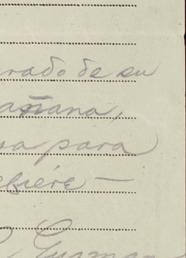 rado de su
añana,
sa para
efiére —
Guzman